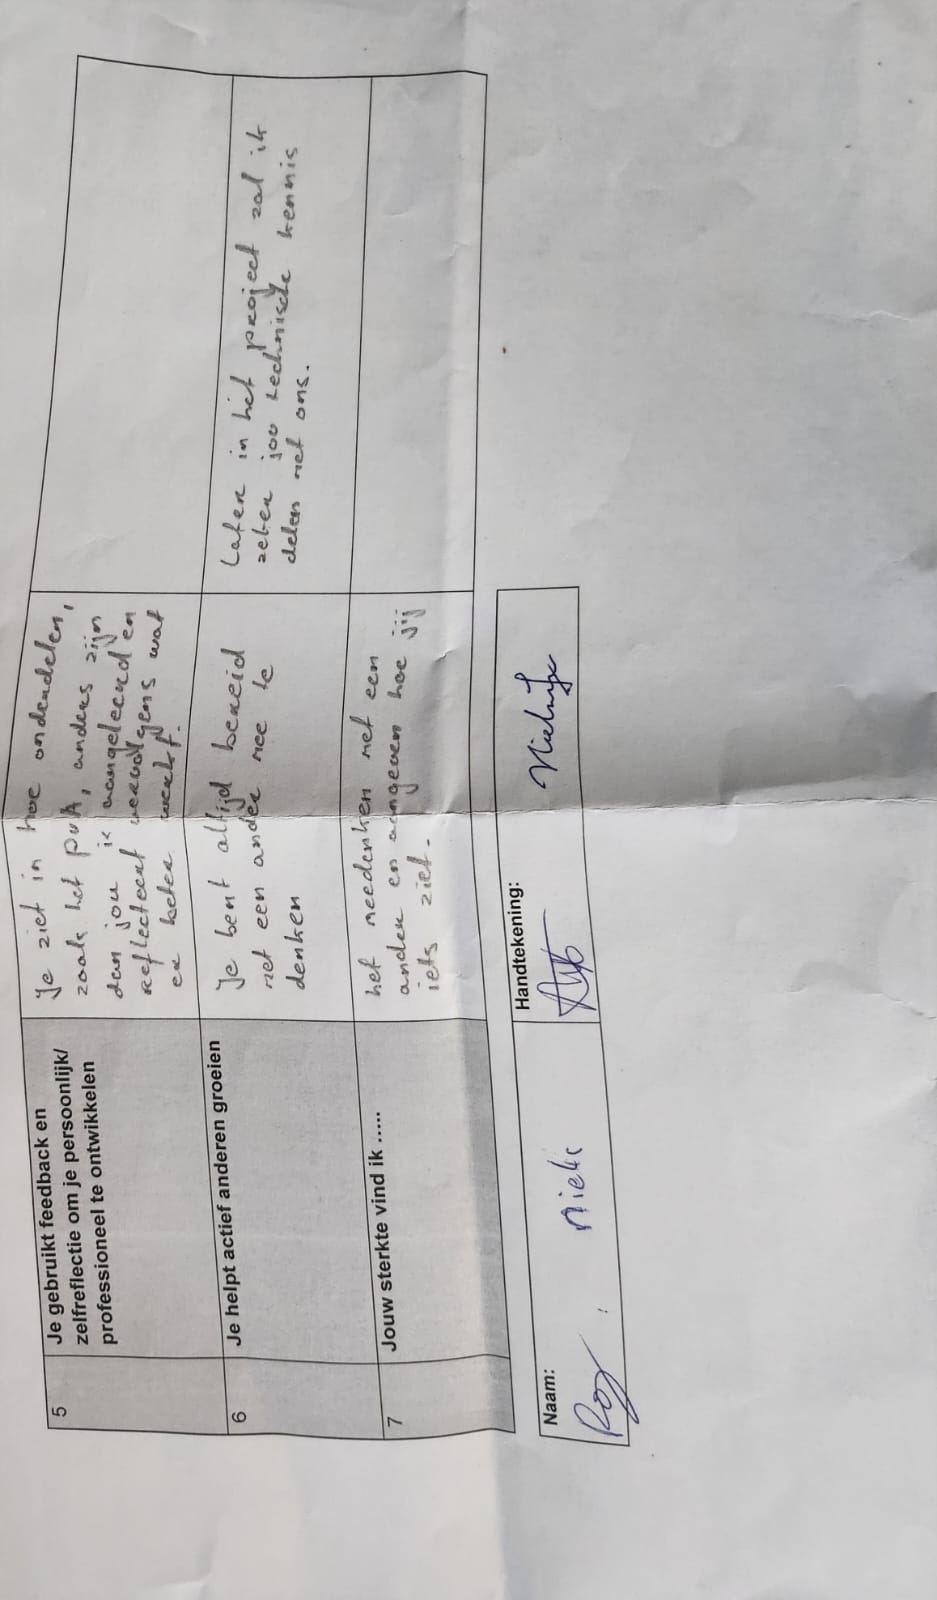 5
Je gebruikt feedback en
zelfreflectie om je persoonlijk/
professioneel te ontwikkelen
Je ziet in hoe onderdelen,
zoals het PvA, anders zijn
dan jou is aangeleerd en
reflecteert vervolgens wat
er beter werkt.
6
Je helpt actief anderen groeien
Je bent altijd bereid
met een ander mee te
denken
Later in het project zal ik
zeker jou technische kennis
delen met ons.
7
Jouw sterkte vind ik .....
het meedenken met een
ander en aangeven hoe jij
iets ziet.
Naam:
Roy
Niels
Handtekening: